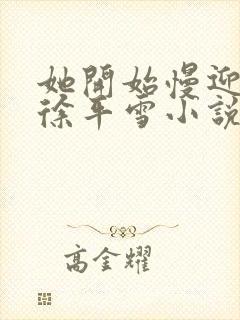 她開始慢迎
徐平雪小說
高金耀